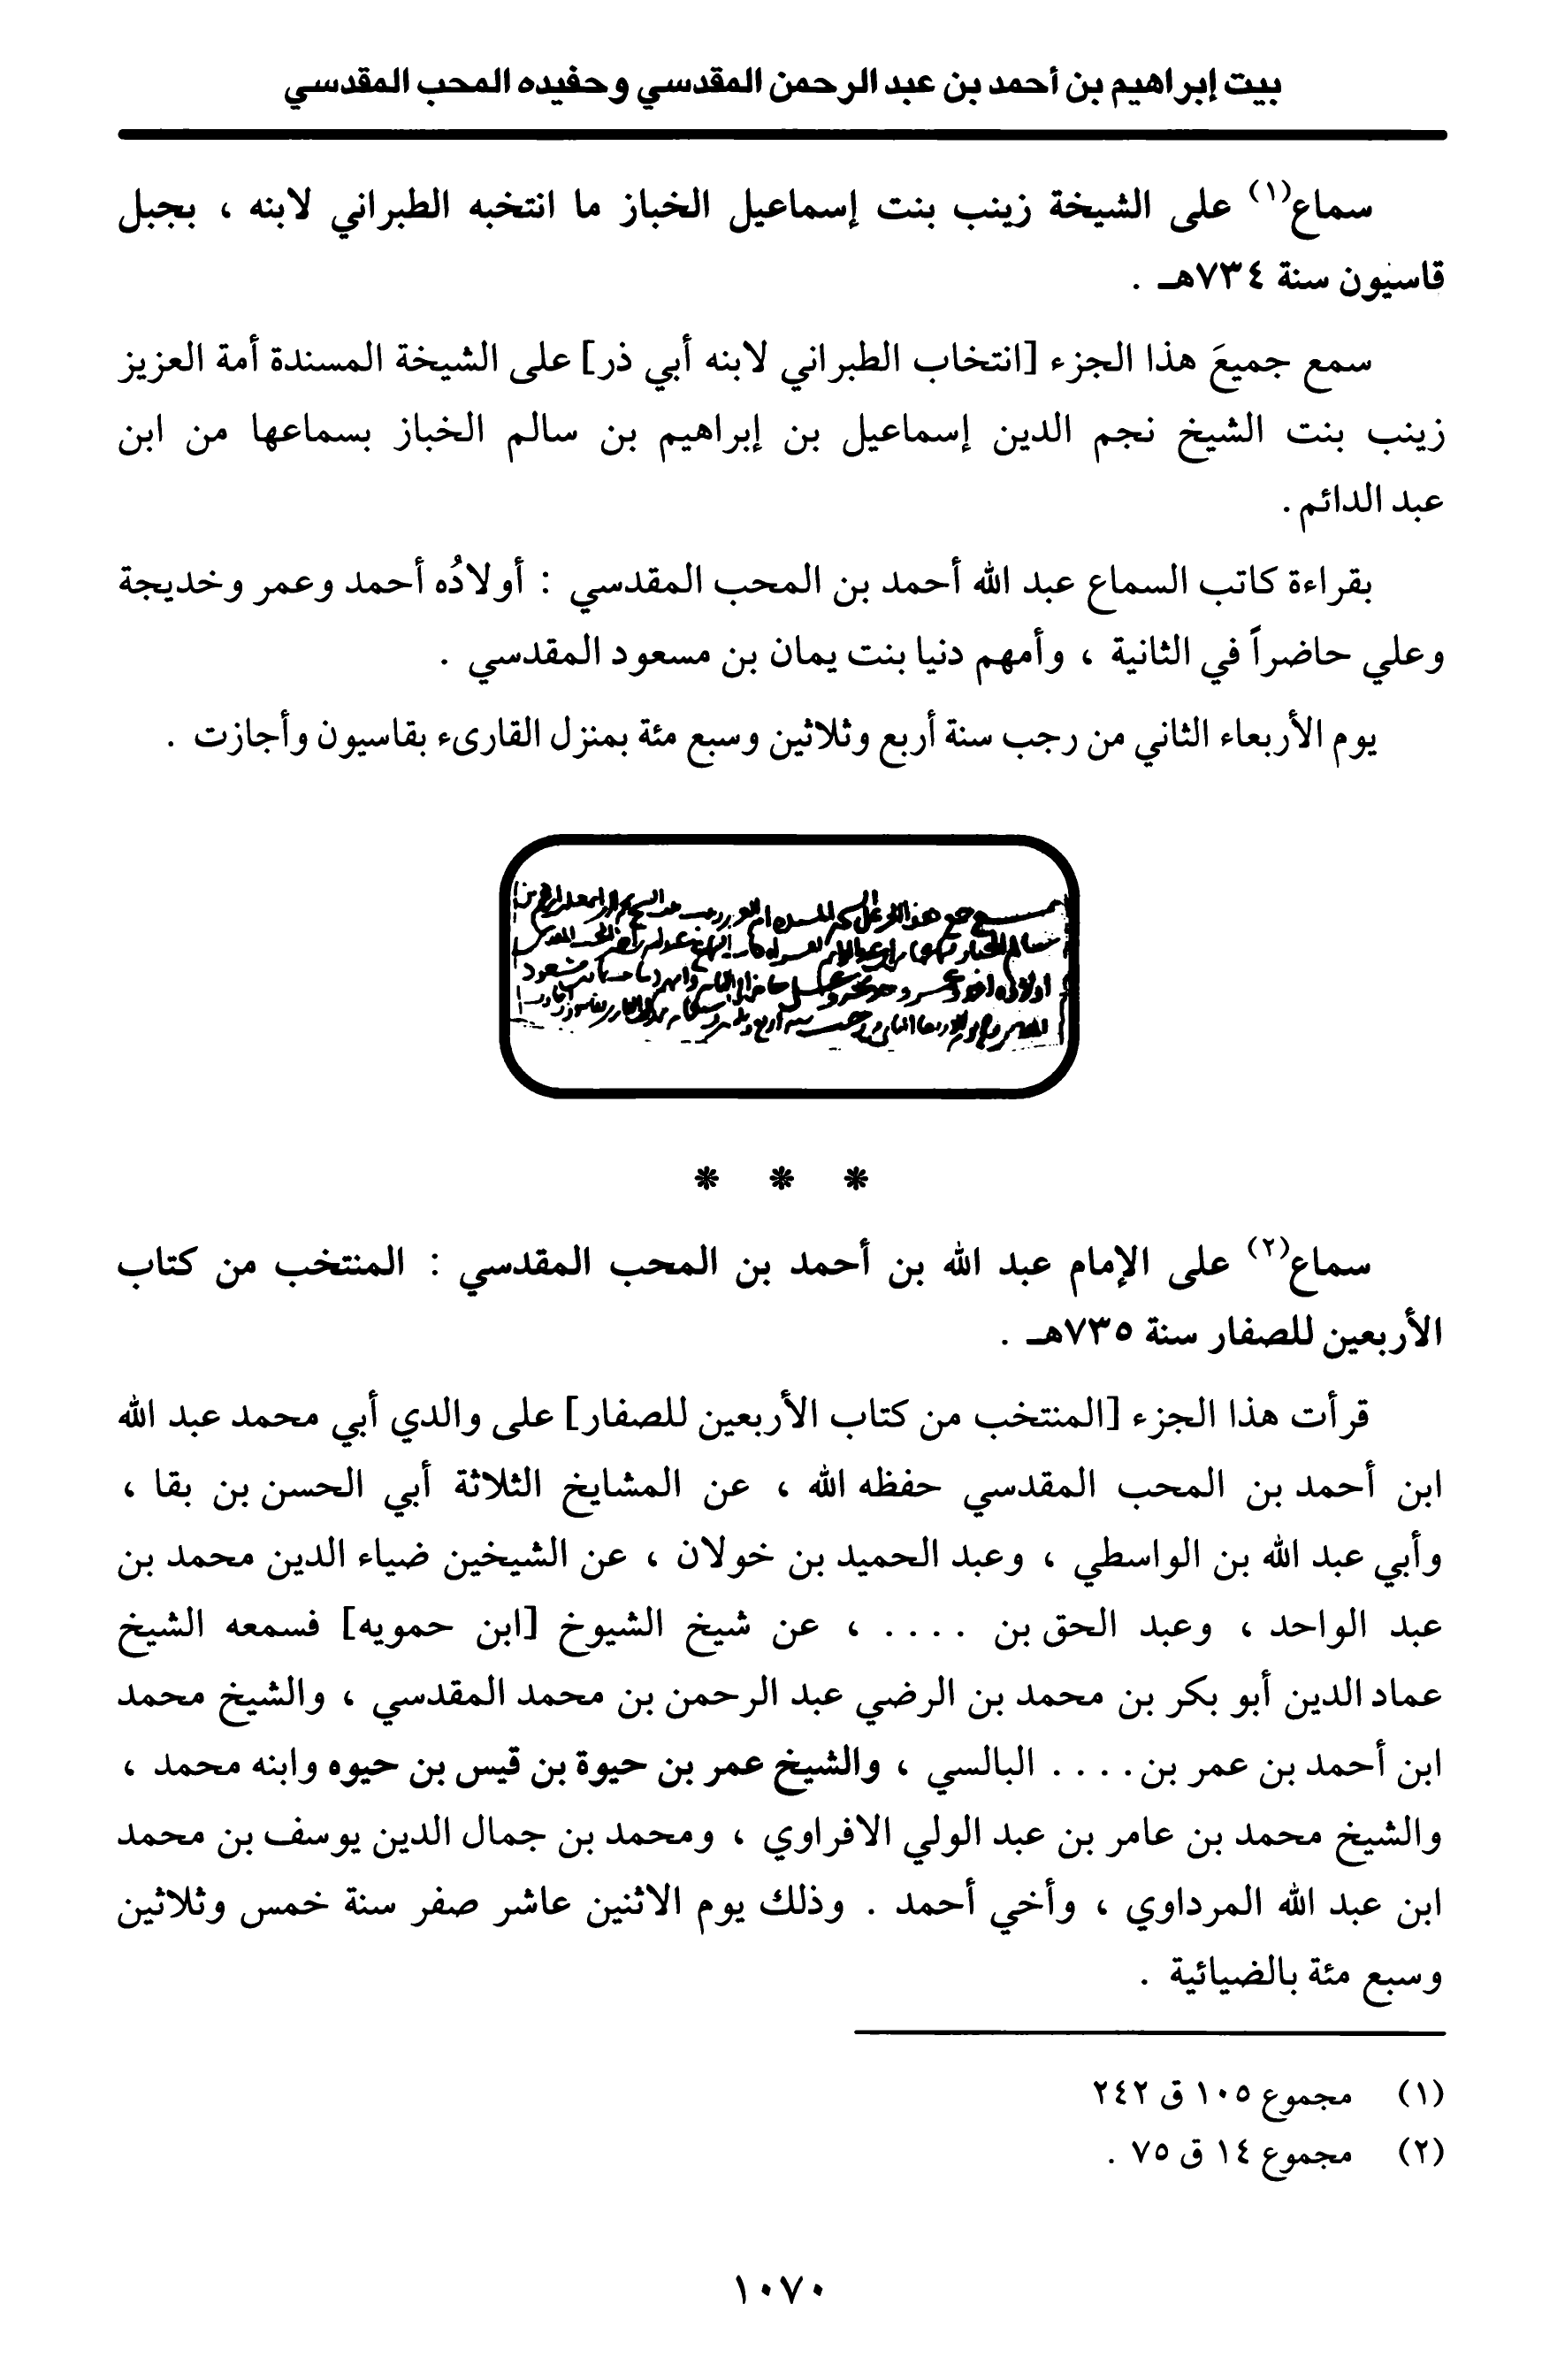 بيت إبراهيم بن أحمد بن عبد الرحمن المقدسي وحفيده المحب المقدسي
سماع(١) على الشيخة زينب بنت إسماعيل الخباز ما انتخبه الطبراني لابنه ، بجبل
قاسيون سنة ٧٣٤هـ .
سمع جميعَ هذا الجزء [انتخاب الطبراني لابنه أبي ذر] على الشيخة المسندة أمة العزيز
زينب بنت الشيخ نجم الدين إسماعيل بن إبراهيم بن سالم الخباز بسماعها من ابن
عبد الدائم .
بقراءة كاتب السماع عبد الله أحمد بن المحب المقدسي : أولادُه أحمد وعمر وخديجة
وعلي حاضراً في الثانية ، وأمهم دنيا بنت يمان بن مسعود المقدسي .
يوم الأربعاء الثاني من رجب سنة أربع وثلاثين وسبع مئة بمنزل القارىء بقاسيون وأجازت .
* * *
سماع(٢) على الإمام عبد الله بن أحمد بن المحب المقدسي : المنتخب من كتاب
الأربعين للصفار سنة ٧٣٥هـ .
قرأت هذا الجزء [المنتخب من كتاب الأربعين للصفار] على والدي أبي محمد عبد الله
ابن أحمد بن المحب المقدسي حفظه الله ، عن المشايخ الثلاثة أبي الحسن بن بقا ،
وأبي عبد الله بن الواسطي ، وعبد الحميد بن خولان ، عن الشيخين ضياء الدين محمد بن
عبد الواحد ، وعبد الحق بن .... ، عن شيخ الشيوخ [ابن حمويه] فسمعه الشيخ
عماد الدين أبو بكر بن محمد بن الرضي عبد الرحمن بن محمد المقدسي ، والشيخ محمد
ابن أحمد بن عمر بن .... البالسي ، والشيخ عمر بن حيوة بن قيس بن حيوه وابنه محمد ،
والشيخ محمد بن عامر بن عبد الولي الافراوي ، ومحمد بن جمال الدين يوسف بن محمد
ابن عبد الله المرداوي ، وأخي أحمد . وذلك يوم الاثنين عاشر صفر سنة خمس وثلاثين
وسبع مئة بالضيائية .
(١) مجموع ١٠٥ ق ٢٤٢
(٢) مجموع ١٤ ق ٧٥ .
١٠٧٠